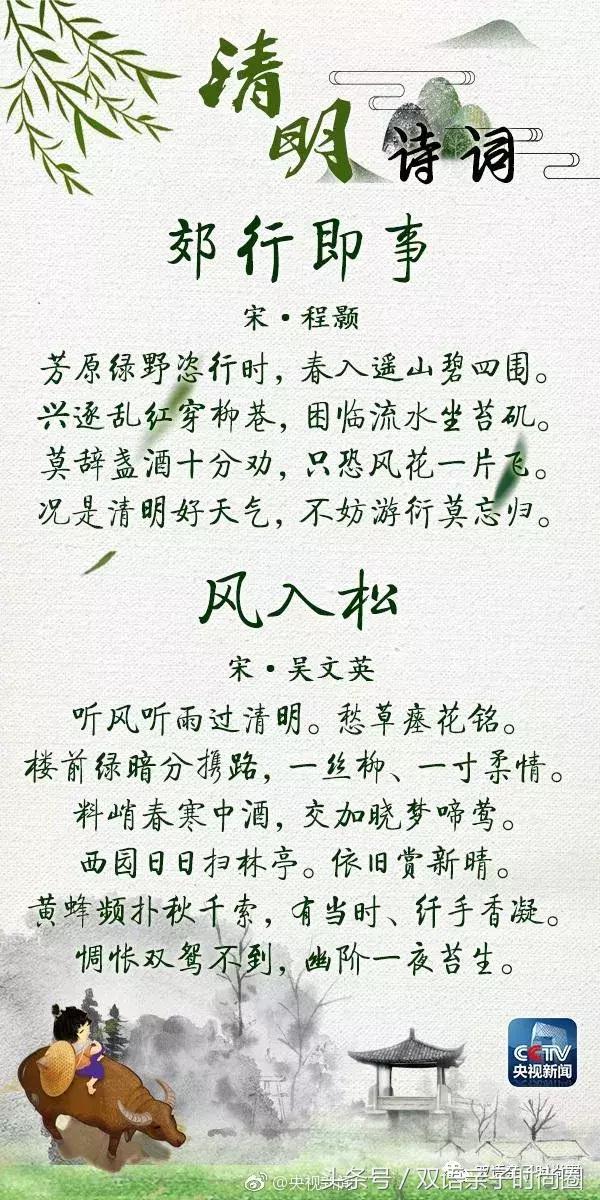 清明
诗词
郊行即事
宋·程颢
芳原绿野恣行时，春入遥山碧四围。
兴逐乱红穿柳巷，困临流水坐苔矶。
莫辞盏酒十分劝，只恐风花一片飞。
况是清明好天气，不妨游衍莫忘归。
风入松
宋·吴文英
听风听雨过清明。愁草瘗花铭。
楼前绿暗分携路，一丝柳、一寸柔情。
料峭春寒中酒，交加晓梦啼莺。
西园日日扫林亭。依旧赏新晴。
黄蜂频扑秋千索，有当时、纤手香凝。
惆怅双鸳不到，幽阶一夜苔生。
CCTV
央视新闻
@央视新闻
头条号／双语亲子时尚圈